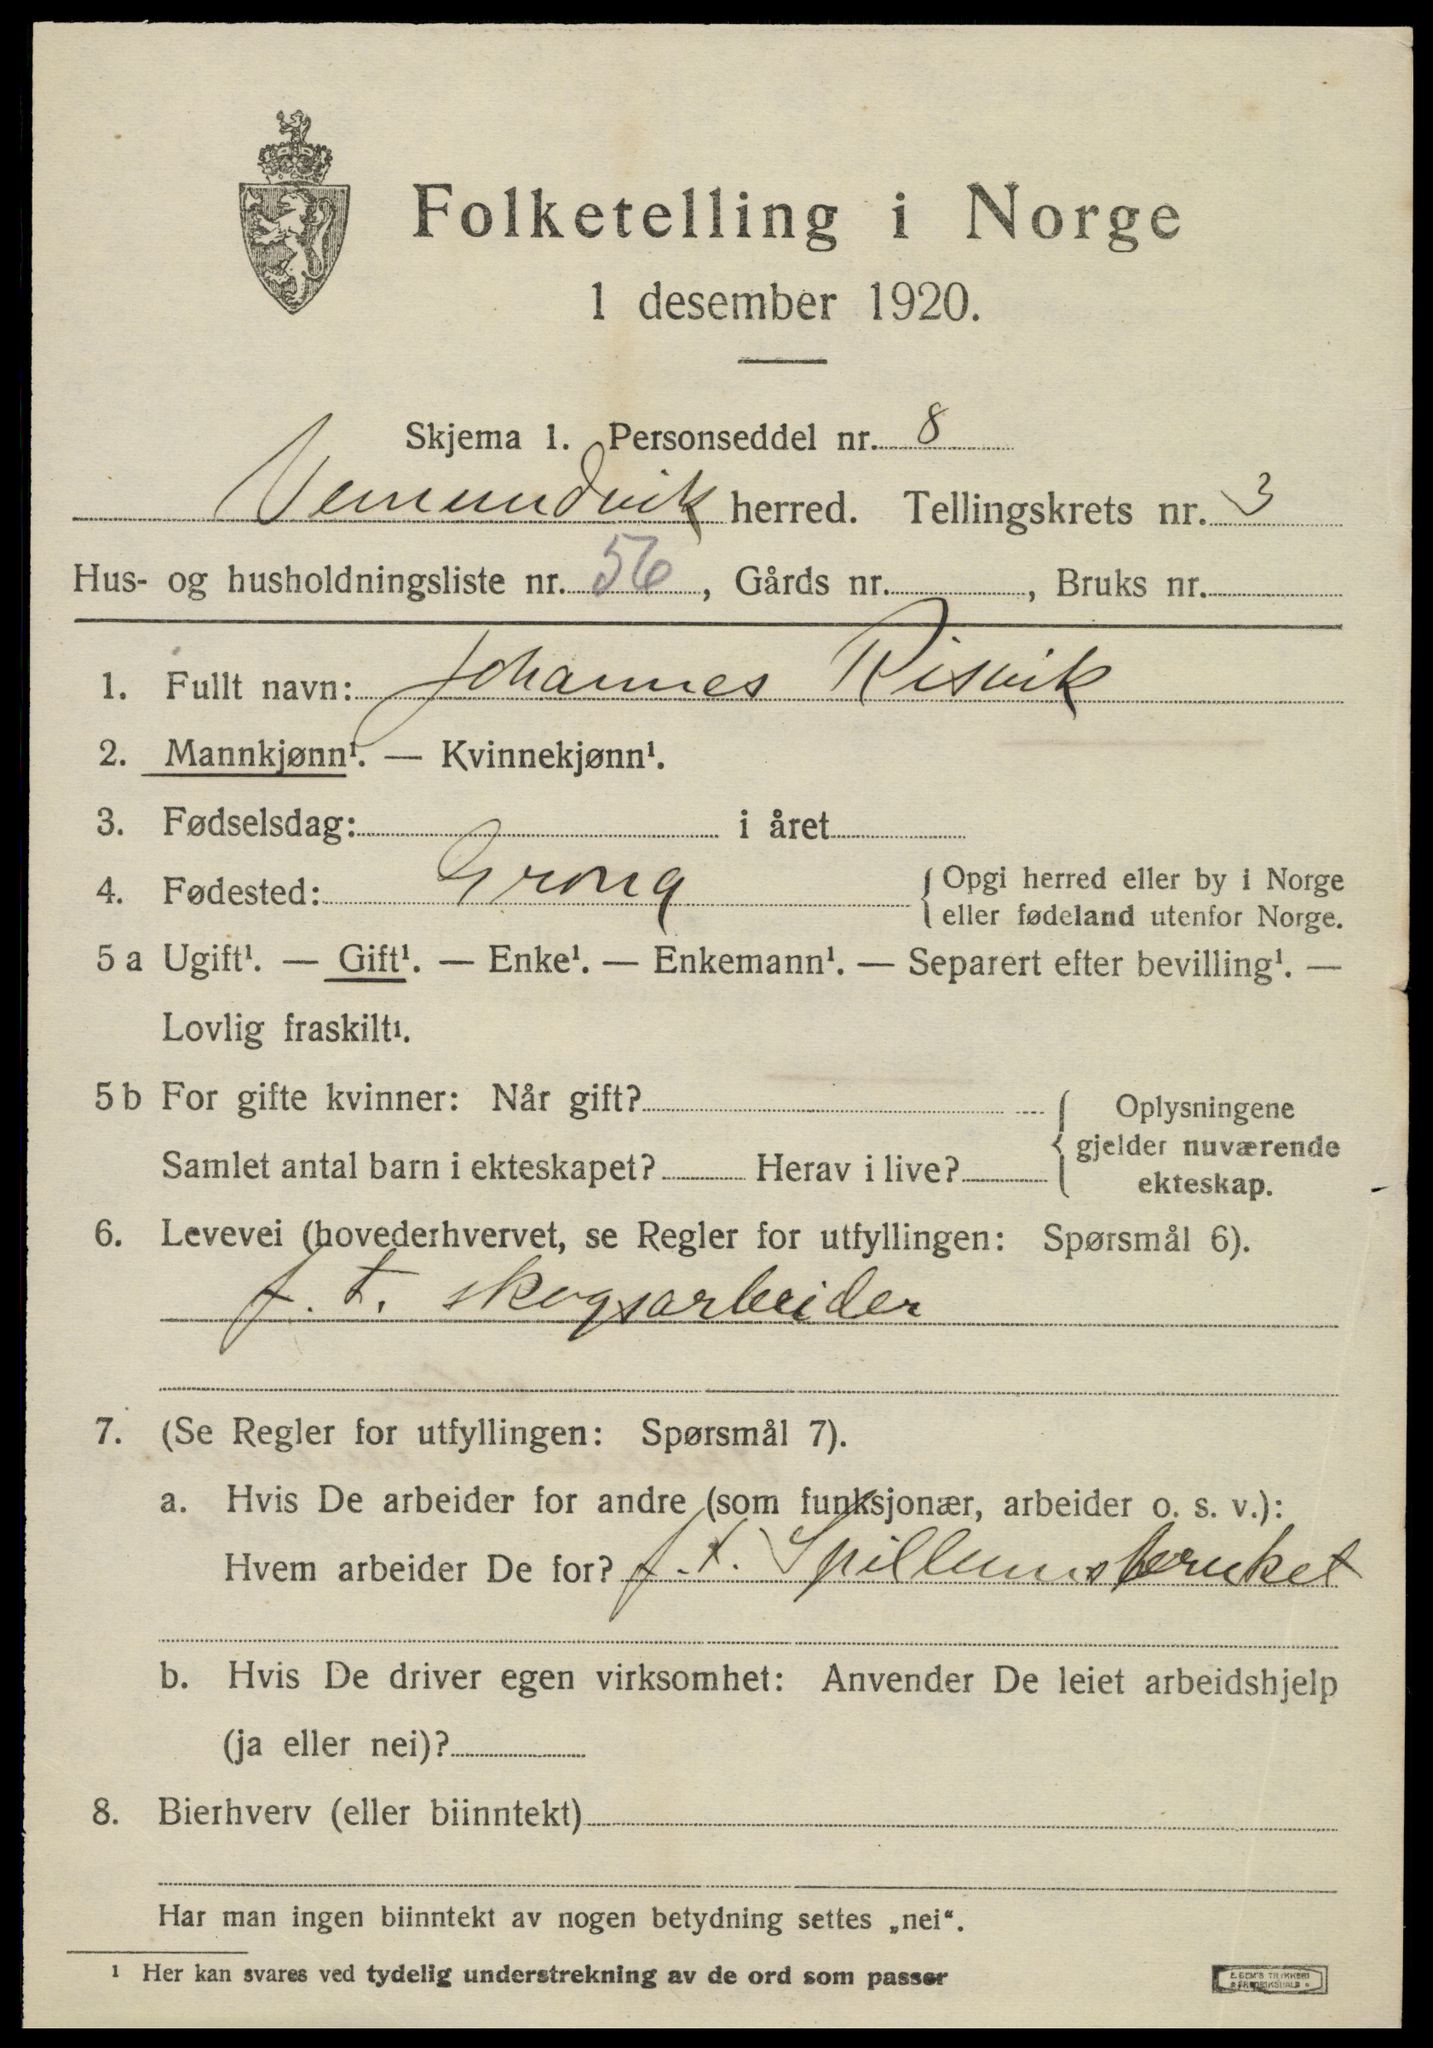 Folketelling i Norge
1 desember 1920.
Skjema 1. Personseddel nr. 8
Vemundvik herred. Tellingskrets nr. 3
Hus- og husholdningsliste nr. 56, Gårds nr. , Bruks nr.
1. Fullt navn: Johannes Risvik
2. Mannkjønn¹. — Kvinnekjønn¹.
3. Fødselsdag: i året
4. Fødested: Grong { Opgi herred eller by i Norge
eller fødeland utenfor Norge.
5 a Ugift¹. — Gift¹. — Enke¹. — Enkemann¹. — Separert efter bevilling¹. —
Lovlig fraskilt¹.
5 b For gifte kvinner: Når gift? { Oplysningene
gjelder nuværende
Samlet antal barn i ekteskapet? Herav i live? ekteskap.
6. Levevei (hovederhvervet, se Regler for utfyllingen: Spørsmål 6).
f. t. skogsarbeider
7. (Se Regler for utfyllingen: Spørsmål 7).
a. Hvis De arbeider for andre (som funksjonær, arbeider o. s. v.):
Hvem arbeider De for? f. t. Spillumsbruket
b. Hvis De driver egen virksomhet: Anvender De leiet arbeidshjelp
(ja eller nei)?
8. Bierhverv (eller biinntekt)
Har man ingen biinntekt av nogen betydning settes „nei“.
¹ Her kan svares ved tydelig understrekning av de ord som passer
E. SEM'S TRYKKERI
FREDRIKSHALD